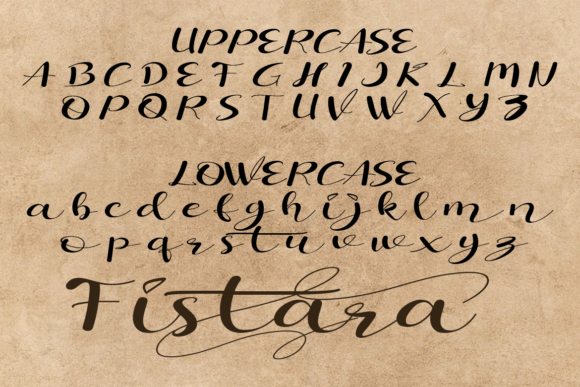 UPPERCASE
A B C D E F G H I J K L M N
O P Q R S T U V W X Y Z
LOWERCASE
a b c d e f g h i j k l m n
o p q r s t u v w x y z
Fistara